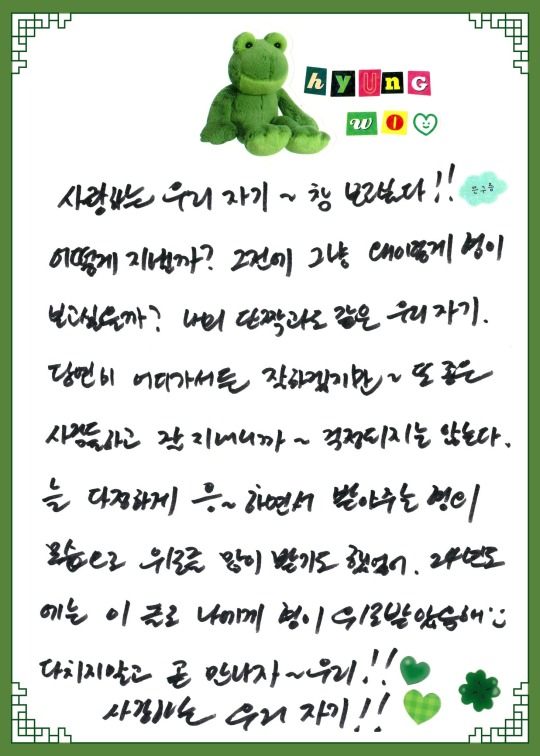 hyUnG
wIO
사랑하는 우리 자기 ~ 참 보고싶다!!
친구들
어떻게 지낼까? 그전에 그냥 왜이렇게 형이
보고싶을까? 나의 단짝과도 같은 우리 자기.
당연히 어디가서든 잘하겠지만 ~ 또 좋은
사람들하고 잘 지내니까 ~ 걱정되지는 않는다.
늘 다정하게 응~ 하면서 받아주는 형의
모습으로 위로를 많이 받기도 했었어. 24년도
에는 이 글로 나에게 형이 위로받았음해
다치지말고 곧 만나자 ~ 우리!!
사랑하는 우리 자기!!